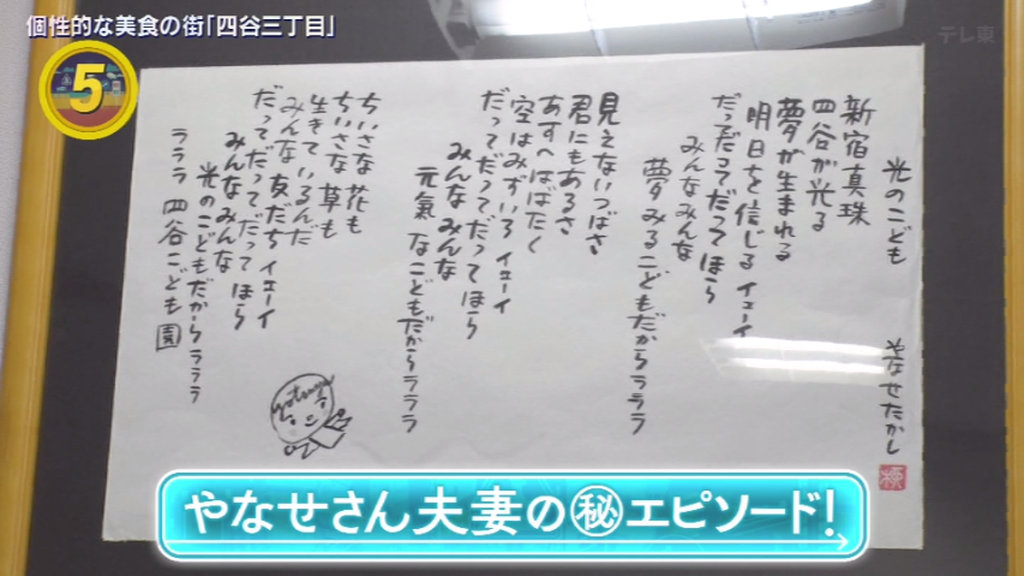 個性的な美食の街「四谷三丁目」
テレ東
5
光のこども　やなせたかし
新宿真珠
四谷が光る
夢が生まれる
明日を信じる イェーイ
だってだってだってほら
みんなみんな
夢みるこどもだからラララ
見えないつばさ
君にもあるさ
あすへはばたく
空はみずいろ イェーイ
だってだってだってほら
みんなみんな
元氣なこどもだからラララ
ちいさな花も
ちいさな草も
生きているんだ
みんな友だち イェーイ
だってだってだってほら
みんなみんな
光のこどもだからラララ
ラララ 四谷こども園
やなせさん夫妻の㊙エピソード!